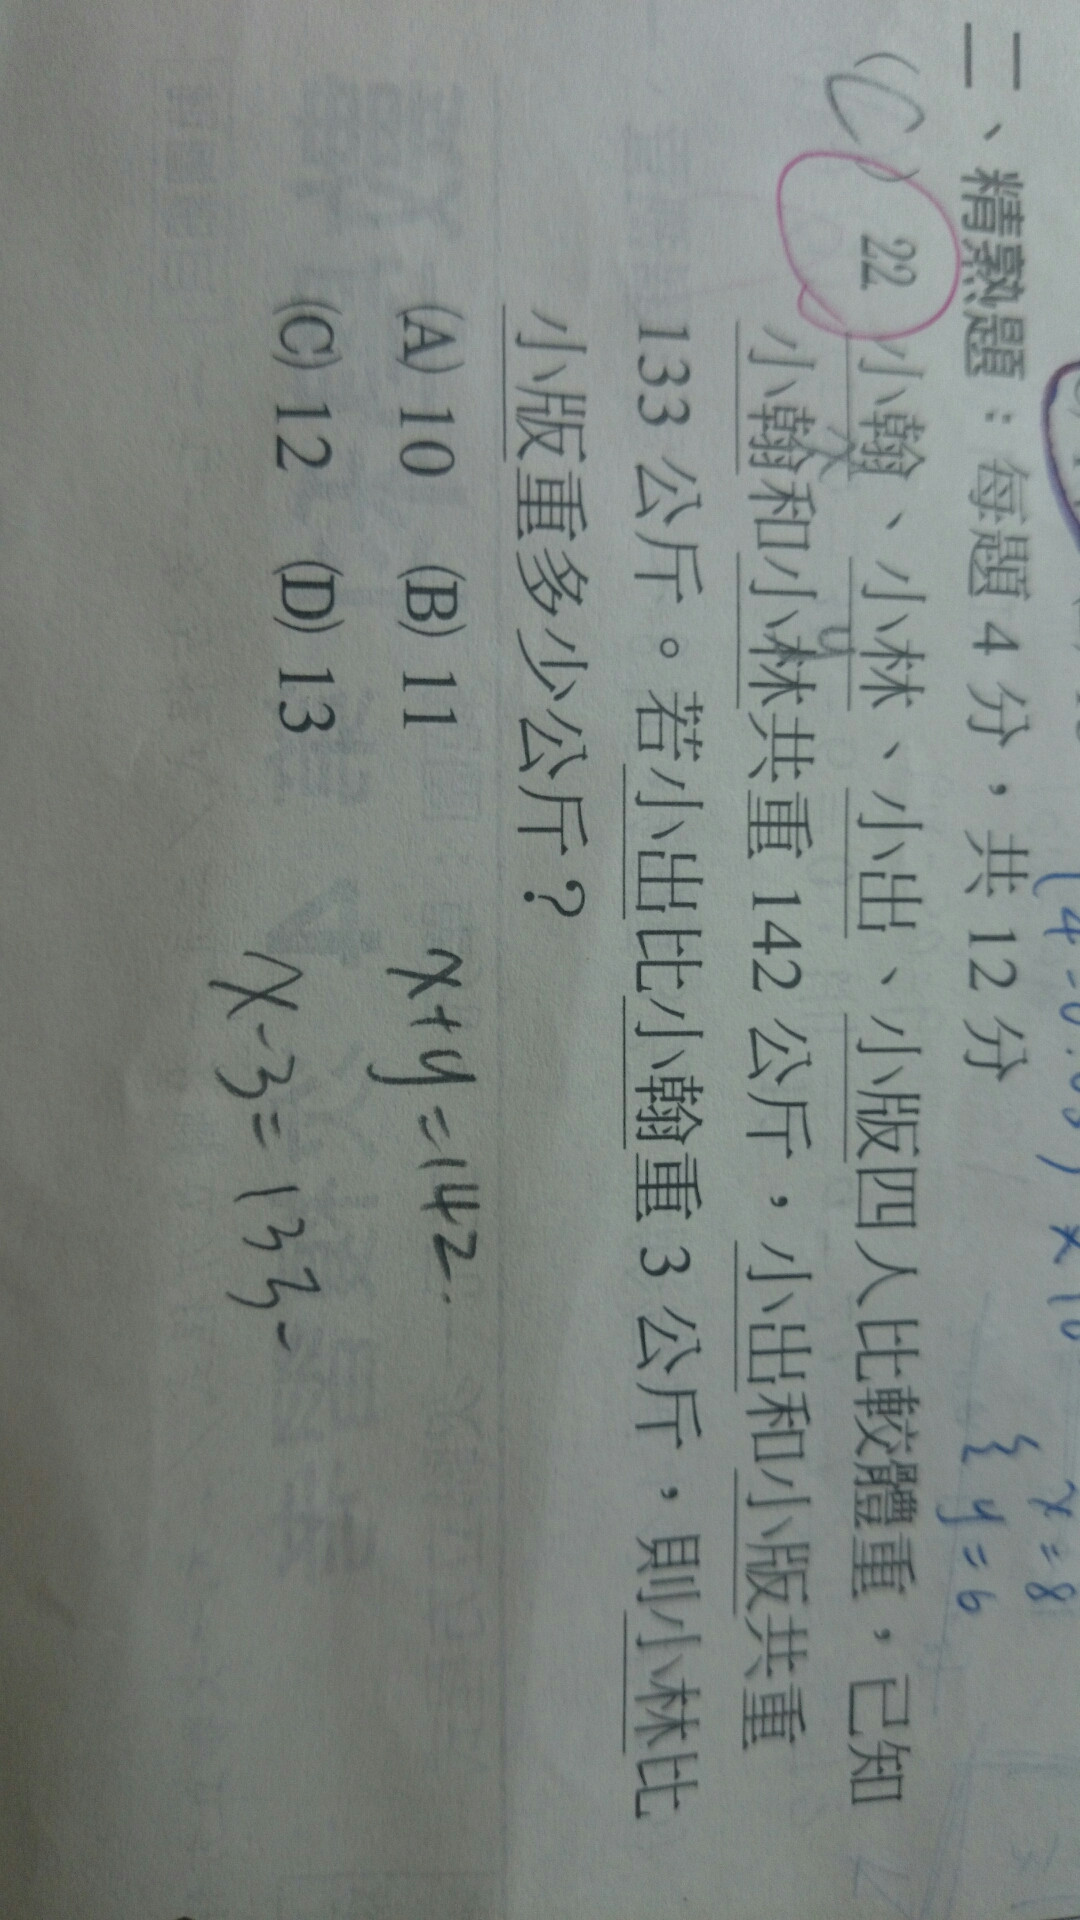 二、精熟題：每題 4 分，共 12 分
(C) 22 小翰、小林、小出、小版四人比較體重，已知
x y
小翰和小林共重 142 公斤，小出和小版共重
133 公斤。若小出比小翰重 3 公斤，則小林比
小版重多少公斤？
(A) 10 (B) 11
(C) 12 (D) 13
x+y=142.
x-3=133-
x=8
y=6